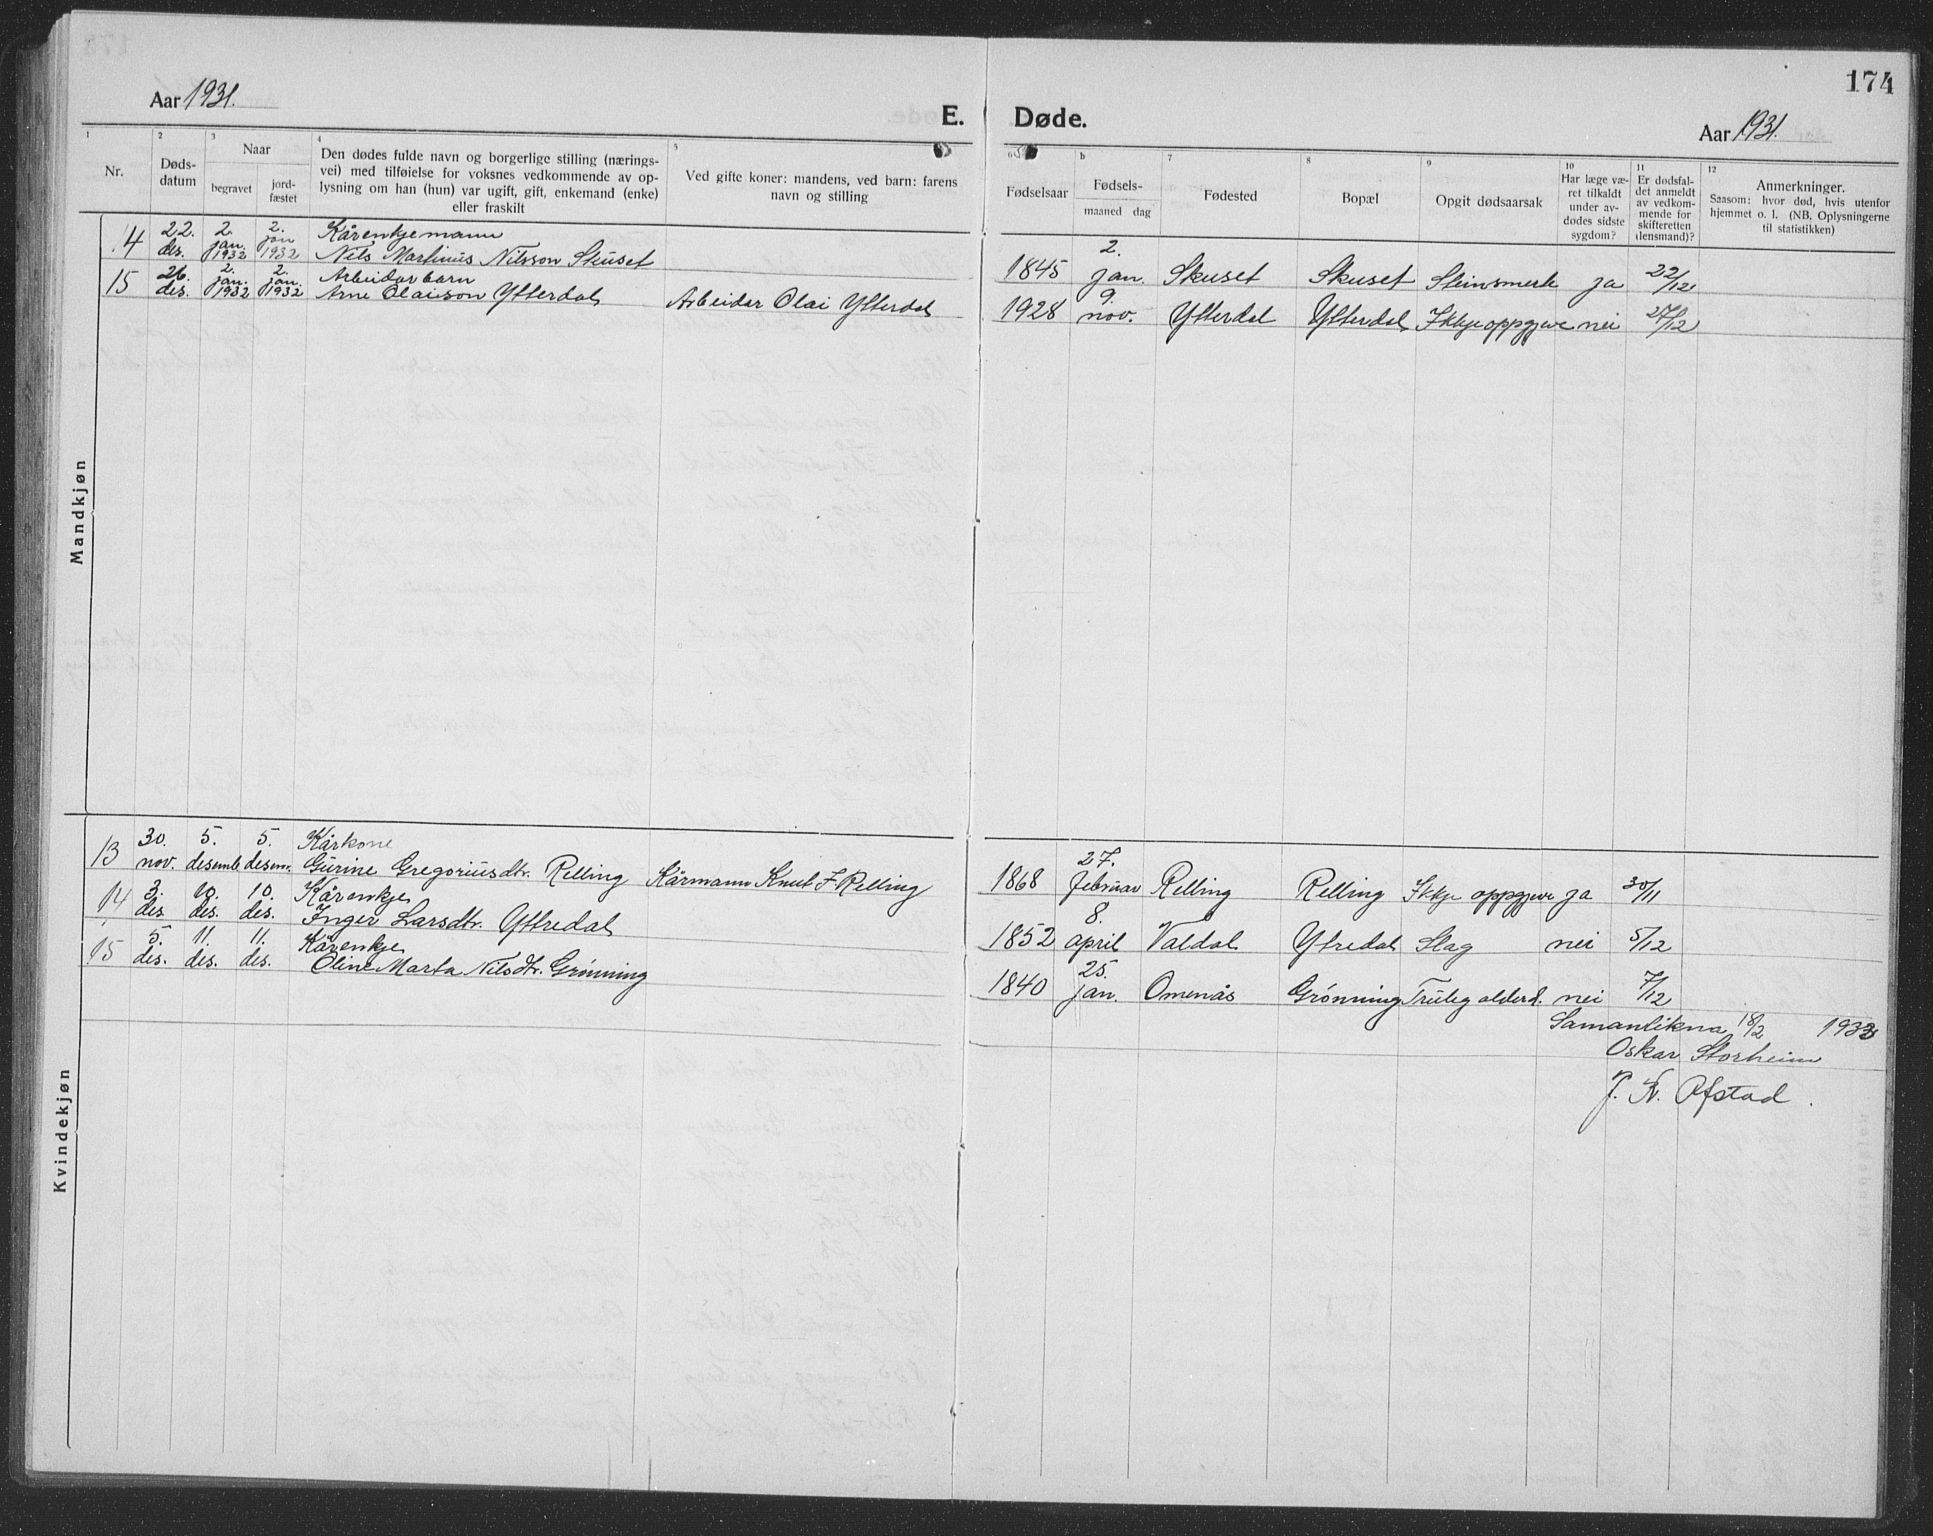 174
Aar 1931.
E. Døde.
Aar 1931.
1
2
3
4
5
6
b
7
8
9
10
11
12
Nr.
Døds-
datum
Naar
begravet
jord-
fæstet
Den dødes fulde navn og borgerlige stilling (nærings-
vei) med tilføielse for voksnes vedkommende av op-
lysning om han (hun) var ugift, gift, enkemand (enke)
eller fraskilt
Ved gifte koner: mandens, ved barn: farens
navn og stilling
Fødselsaar
Fødsels-
maaned dag
Fødested
Bopæl
Opgit dødsaarsak
Har læge væ-
ret tilkaldt
under av-
dødes sidste
sygdom?
Er dødsfal-
det anmeldt
av vedkom-
mende for
skifteretten
(lensmand)?
Anmerkninger.
Saasom: hvor død, hvis utenfor
hjemmet o. l. (NB. Oplysningerne
til statistikken)
Mandkjøn
22. 2. 2. Kårenkjemann
14 des. jan. 1932 jan 1932 Nils Martinus Nilsson Skuset
2.
1845 jan. Skuset Skuset Steinsmerte ja 22/12
26. 2. 2. Arbeidarbarn
15 des. jan. 1932 jan. 1932 Arne Olaison Ytterdal Arbeidar Olai Ytterdal
9.
1928 nov. Ytterdal Ytterdal Ikkje oppgjeve nei 27/12
Kvindekjøn
30. 5. 5. Kårkone
13 nov. desemb. desem. Gurine Gregoriusdtr. Relling Kårmann Knut J Relling
27.
1868 februar Relling Relling Ikkje oppgjeve ja 30/11
3. 10. 10. Kårenkje
14 des. des. des. Inger Larsdtr. Yttredal
8.
1852 april Valdal Ytredal Slag nei 5/12
5. 11. 11. Kårenkje
15 des. des. des. Oline Marta Nilsdtr. Grønning
25.
1840 jan. Omenås Grønning Truleg alderd. nei 7/12
Samanlikna 18/2
Oskar Storheim
J. K. Ofstad.